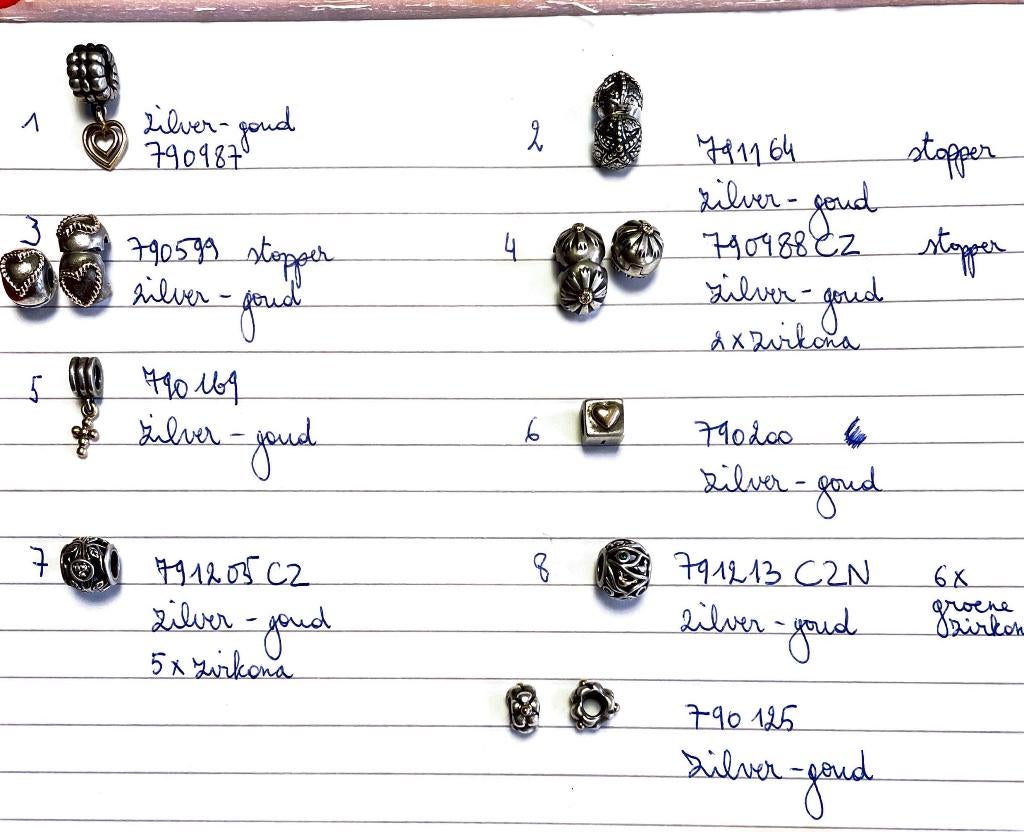 1
zilver-goud
790987
2
791164 stopper
zilver-goud
3
790599 stopper
zilver-goud
4
790988CZ stopper
zilver-goud
2x zirkona
5
790169
zilver-goud
6
790200
zilver-goud
7
791205CZ
zilver-goud
5x zirkona
8
791213 CZN 6x
zilver-goud groene
zirkon
790125
zilver-goud